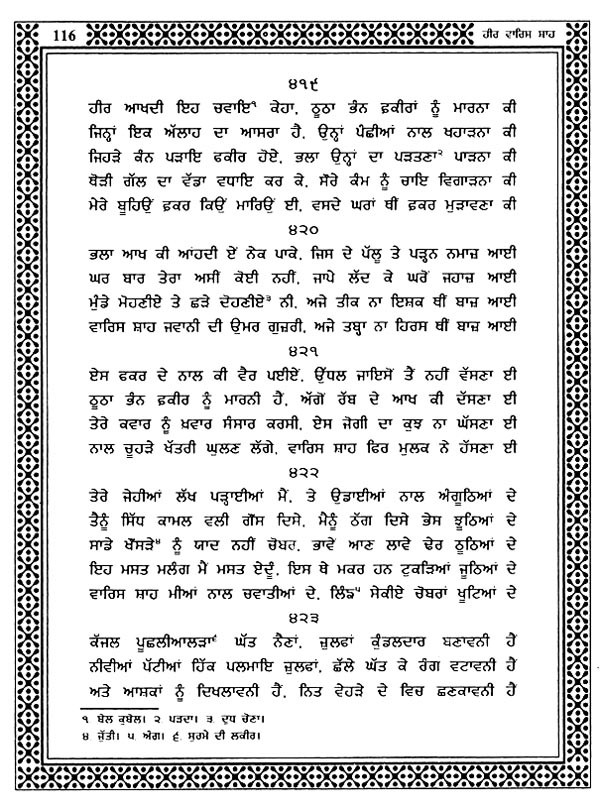 116 ਹੀਰ ਵਾਰਿਸ ਸ਼ਾਹ
੪੧੯
ਹੀਰ ਆਖਦੀ ਇਹ ਚਵਾਇ੧ ਕੇਹਾ, ਠੂਠਾ ਭੰਨ ਫ਼ਕੀਰਾਂ ਨੂੰ ਮਾਰਨਾ ਕੀ
ਜਿਨ੍ਹਾਂ ਇਕ ਅੱਲਾਹ ਦਾ ਆਸਰਾ ਹੈ, ਉਨ੍ਹਾਂ ਪੰਛੀਆਂ ਨਾਲ ਖਹਾੜਨਾ ਕੀ
ਜਿਹੜੇ ਕੰਨ ਪੜਾਇ ਫਕੀਰ ਹੋਏ, ਭਲਾ ਉਨ੍ਹਾਂ ਦਾ ਪੜਤਣਾ੨ ਪਾੜਨਾ ਕੀ
ਥੋੜੀ ਗੱਲ ਦਾ ਵੱਡਾ ਵਧਾਇ ਕਰ ਕੇ, ਸੌਰੇ ਕੰਮ ਨੂੰ ਚਾਇ ਵਿਗਾੜਨਾ ਕੀ
ਮੇਰੇ ਬੂਹਿਉਂ ਫ਼ਕਰ ਕਿਉਂ ਮਾਰਿਉਂ ਈ, ਵਸਦੇ ਘਰਾਂ ਥੀਂ ਫ਼ਕਰ ਮੁੜਾਵਣਾ ਕੀ
੪੨੦
ਭਲਾ ਆਖ ਕੀ ਆਂਹਦੀ ਏਂ ਨੇਕ ਪਾਕੇ, ਜਿਸ ਦੇ ਪੱਲੂ ਤੇ ਪੜ੍ਹਨ ਨਮਾਜ਼ ਆਈ
ਘਰ ਬਾਰ ਤੇਰਾ ਅਸੀਂ ਕੋਈ ਨਹੀਂ, ਜਾਪੇ ਲੱਦ ਕੇ ਘਰੋਂ ਜਹਾਜ਼ ਆਈ
ਮੁੰਡੇ ਮੋਹਣੀਏ ਤੇ ਛੜੇ ਦੋਹਣੀਏ੩ ਨੀ, ਅਜੇ ਤੀਕ ਨਾ ਇਸ਼ਕ ਥੀਂ ਬਾਜ਼ ਆਈ
ਵਾਰਿਸ ਸ਼ਾਹ ਜਵਾਨੀ ਦੀ ਉਮਰ ਗੁਜ਼ਰੀ, ਅਜੇ ਤਬ੍ਹਾ ਨਾ ਹਿਰਸ ਥੀਂ ਬਾਜ਼ ਆਈ
੪੨੧
ਏਸ ਫਕਰ ਦੇ ਨਾਲ ਕੀ ਵੈਰ ਪਈਏਂ, ਉੱਧਲ ਜਾਇਸੇਂ ਤੈਂ ਨਹੀਂ ਵੱਸਣਾ ਈ
ਠੂਠਾ ਭੰਨ ਫ਼ਕੀਰ ਨੂੰ ਮਾਰਨੀ ਹੈਂ, ਅੱਗੋਂ ਰੱਬ ਦੇ ਆਖ ਕੀ ਦੱਸਣਾ ਈ
ਤੇਰੇ ਕਵਾਰ ਨੂੰ ਖ਼ਵਾਰ ਸੰਸਾਰ ਕਰਸੀ, ਏਸ ਜੋਗੀ ਦਾ ਕੁਝ ਨਾ ਘੱਸਣਾ ਈ
ਨਾਲ ਚੂਹੜੇ ਖੱਤਰੀ ਘੁਲਣ ਲੱਗੇ, ਵਾਰਿਸ ਸ਼ਾਹ ਫਿਰ ਮੁਲਕ ਨੇ ਹੱਸਣਾ ਈ
੪੨੨
ਤੇਰੇ ਜੇਹੀਆਂ ਲੱਖ ਪੜ੍ਹਾਈਆਂ ਮੈਂ, ਤੇ ਉਡਾਈਆਂ ਨਾਲ ਅੰਗੂਠਿਆਂ ਦੇ
ਤੈਨੂੰ ਸਿੱਧ ਕਾਮਲ ਵਲੀ ਗੌਸ ਦਿਸੇ, ਮੈਨੂੰ ਠੱਗ ਦਿਸੇ ਭੇਸ ਝੂਠਿਆਂ ਦੇ
ਸਾਡੇ ਖੌਂਸੜੇ੪ ਨੂੰ ਯਾਦ ਨਹੀਂ ਚੋਬਰ, ਭਾਵੇਂ ਆਣ ਲਾਵੇ ਢੇਰ ਠੂਠਿਆਂ ਦੇ
ਇਹ ਮਸਤ ਮਲੰਗ ਮੈਂ ਮਸਤ ਏਦੂੰ, ਇਸ ਥੇ ਮਕਰ ਹਨ ਟੁਕੜਿਆਂ ਜੂਠਿਆਂ ਦੇ
ਵਾਰਿਸ ਸ਼ਾਹ ਮੀਆਂ ਨਾਲ ਚਵਾਤੀਆਂ ਦੇ, ਲਿੰਙ੫ ਸੇਕੀਏ ਚੋਬਰਾਂ ਖੂਟਿਆਂ ਦੇ
੪੨੩
ਕੱਜਲ ਪੂਛਲੀਆਲੜਾ੬ ਘੱਤ ਨੈਣਾਂ, ਜ਼ੁਲਫਾਂ ਕੁੰਡਲਦਾਰ ਬਣਾਵਨੀ ਹੈਂ
ਨੀਵੀਆਂ ਪੱਟੀਆਂ ਹਿੱਕ ਪਲਮਾਇ ਜ਼ੁਲਫਾਂ, ਛੱਲੇ ਘੱਤ ਕੇ ਰੰਗ ਵਟਾਵਨੀ ਹੈਂ
ਅਤੇ ਆਸ਼ਕਾਂ ਨੂੰ ਦਿਖਲਾਵਨੀ ਹੈਂ, ਨਿਤ ਵੇਹੜੇ ਦੇ ਵਿਚ ਛਣਕਾਵਨੀ ਹੈਂ
੧. ਬੋਲ ਕੁਬੋਲ। ੨. ਪੜਦਾ। ੩. ਦੁਧ ਚੋਣਾ।
੪. ਜੁੱਤੀ। ੫. ਅੰਗ। ੬. ਸੁਰਮੇ ਦੀ ਲਕੀਰ।